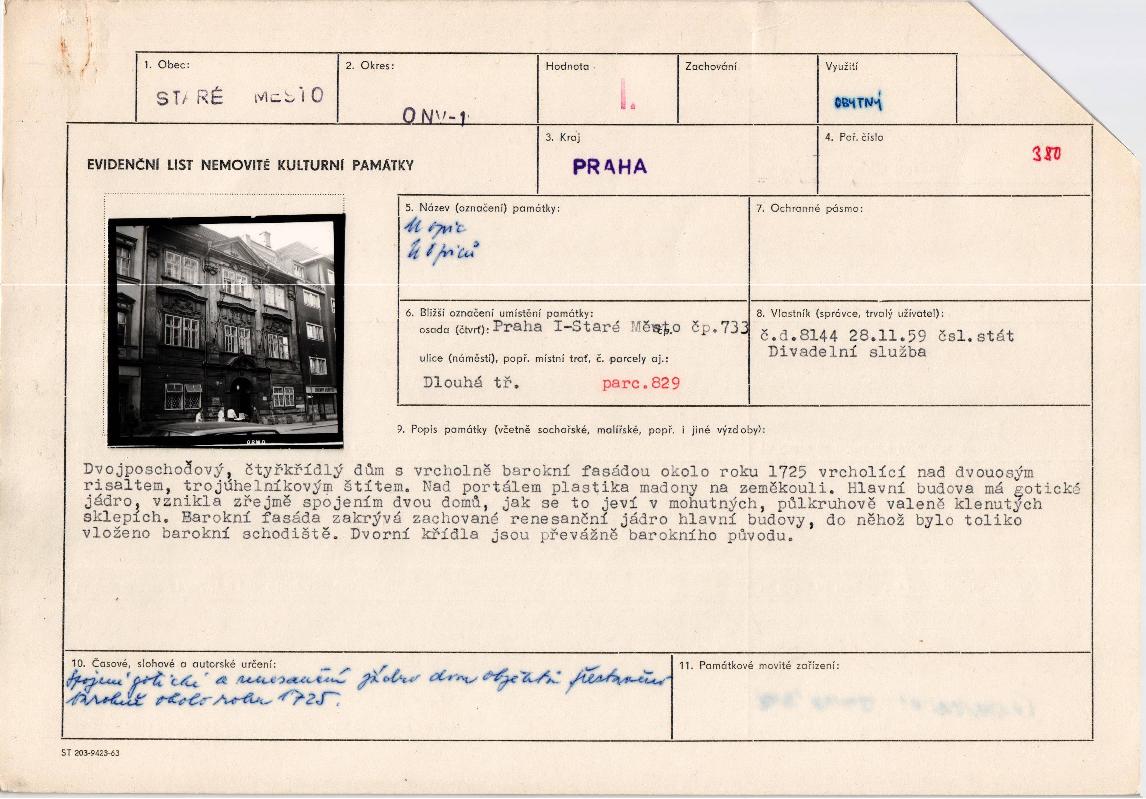 1. Obec:
STARÉ MĚSTO
2. Okres:
ONV-1
Hodnota
I.
Zachování
Využití
OBYTNÝ
EVIDENČNÍ LIST NEMOVITÉ KULTURNÍ PAMÁTKY
3. Kraj
PRAHA
4. Poř. číslo
380
5. Název (označení) památky:
U opic
U Opiců
7. Ochranné pásmo:
6. Bližší označení umístění památky:
osada (čtvrť): Praha I-Staré Město čp.733
ulice (náměstí), popř. místní trať, č. parcely aj.:
Dlouhá tř. parc.829
8. Vlastník (správce, trvalý uživatel):
č.d.8144 28.11.59 čsl.stát
Divadelní služba
9. Popis památky (včetně sochařské, malířské, popř. i jiné výzdoby):
Dvojposchoďový, čtyřkřídlý dům s vrcholně barokní fasádou okolo roku 1725 vrcholící nad dvouosým
risaltem, trojúhelníkovým štítem. Nad portálem plastika madony na zeměkouli. Hlavní budova má gotické
jádro, vznikla zřejmě spojením dvou domů, jak se to jeví v mohutných, půlkruhově valeně klenutých
sklepích. Barokní fasáda zakrývá zachované renesanční jádro hlavní budovy, do něhož bylo toliko
vloženo barokní schodiště. Dvorní křídla jsou převážně barokního původu.
10. Časové, slohové a autorské určení:
Spojení gotické a renesanční jádro dvou objektů přestavěno
barokně okolo roku 1725.
11. Památkové movité zařízení:
ST 203-9423-63